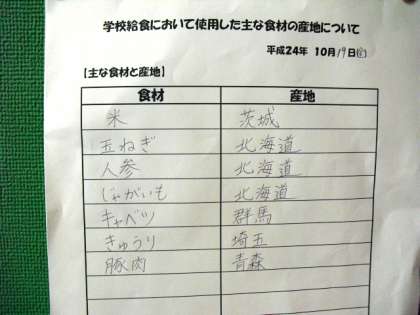 学校給食において使用した主な食材の産地について
平成24年 10月19日(金)
【主な食材と産地】
食材 産地
米 茨城
玉ねぎ 北海道
人参 北海道
じゃがいも 北海道
キャベツ 群馬
きゅうり 埼玉
豚肉 青森